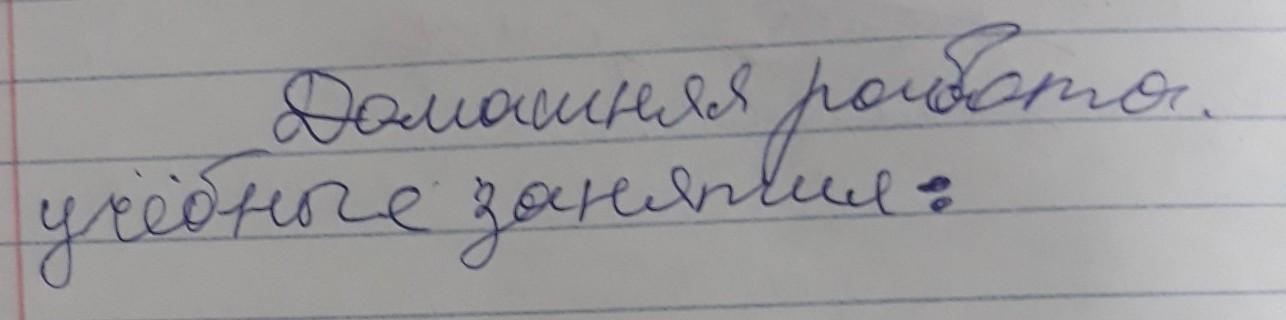 Домашняя работа.
учёбные занятия: